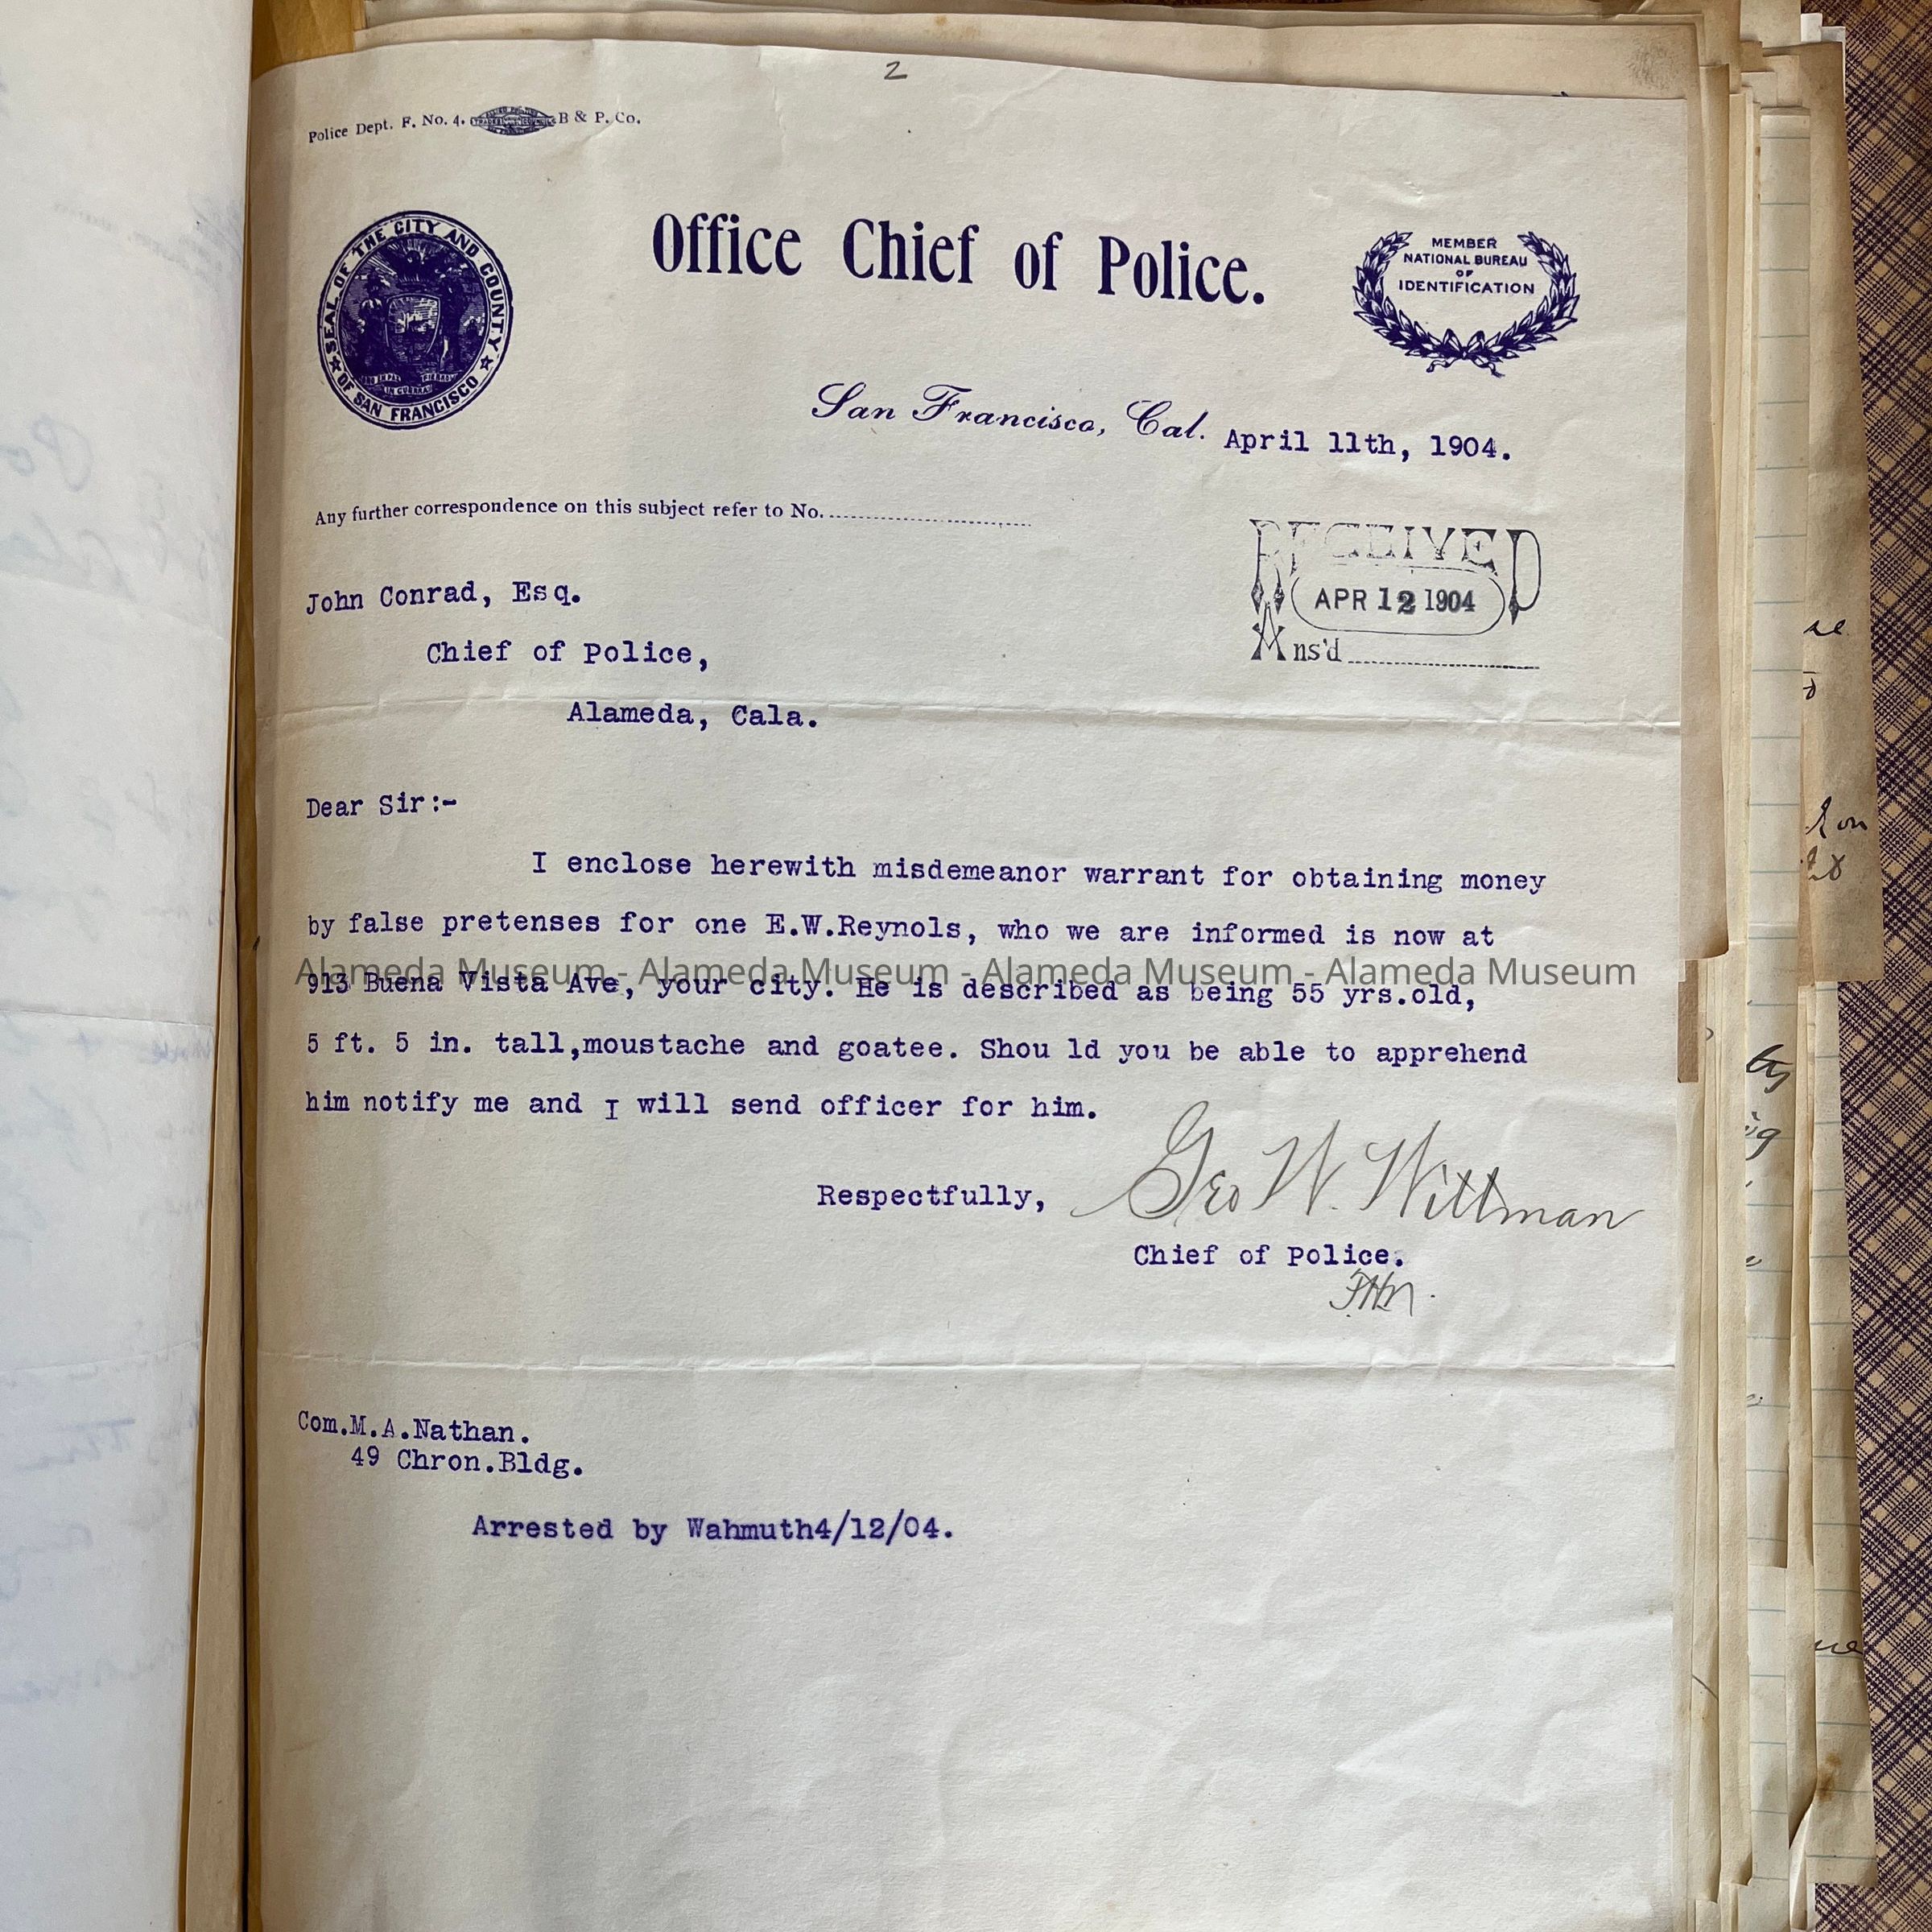 2
Police Dept. F. No. 4. B & P. Co.
SEAL OF THE CITY AND COUNTY OF SAN FRANCISCO
Office Chief of Police.
MEMBER
NATIONAL BUREAU
OF
IDENTIFICATION
San Francisco, Cal. April 11th, 1904.
Any further correspondence on this subject refer to No.
RECEIVED
APR 12 1904
Ans'd
John Conrad, Esq.
Chief of Police,
Alameda, Cala.
Dear Sir:-
I enclose herewith misdemeanor warrant for obtaining money
by false pretenses for one E.W.Reynols, who we are informed is now at
Alameda Museum - Alameda Museum - Alameda Museum - Alameda Museum
913 Buena Vista Ave, your city. He is described as being 55 yrs.old,
5 ft. 5 in. tall,moustache and goatee. Shou ld you be able to apprehend
him notify me and I will send officer for him.
Respectfully, Geo W. Wittman
Chief of Police.
Com.M.A.Nathan.
49 Chron.Bldg.
Arrested by Wahmuth4/12/04.